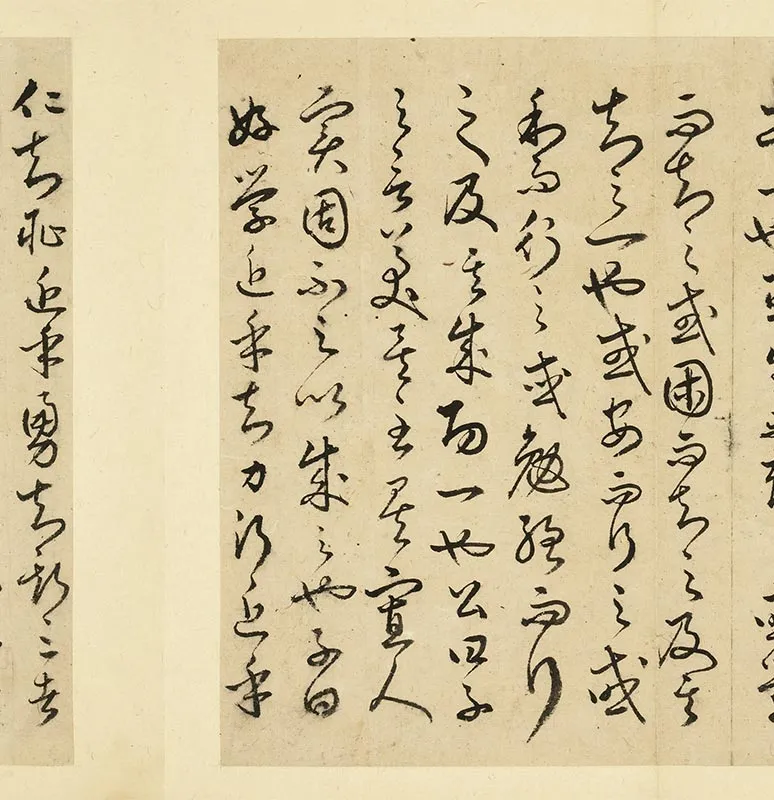 而知之或困而知之及其
知之一也或安而行之或
利而行之或勉強而行
之及其成功一也公曰子
之言美矣至矣寡人
實固不足以成之也子曰
好學近乎知力行近乎
仁知恥近乎勇知斯三者